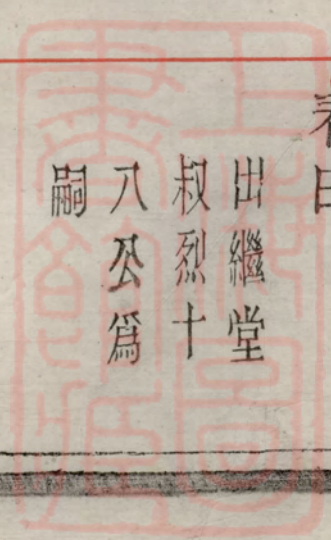 出繼堂
叔烈十
八公爲
嗣